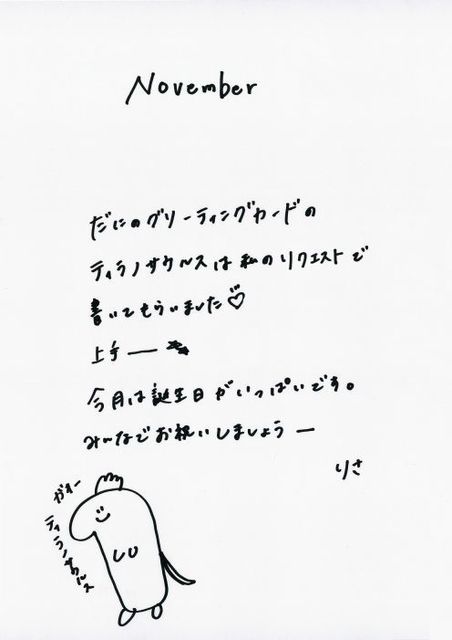 November
だにのグリーティングカードの
ティラノサウルスは私のリクエストで
書いてもらいました♡
上手ー
今月は誕生日がいっぱいです。
みーなでお祝いしましょうー
りさ
ガオー
ティラノサウルス